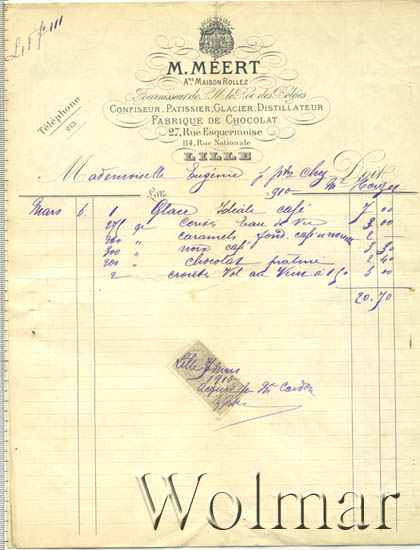 M. MÉERT
Anne MAISON ROLLEZ
Fournisseur de S.M. le Roi des Belges
CONFISEUR, PATISSIER, GLACIER, DISTILLATEUR
FABRIQUE DE CHOCOLAT
27, Rue Esquermoise
114, Rue Nationale
LILLE
Téléphone
213
Mademoiselle Eugénie chez Mr Doit
Lille, 190
Mars 6. 1 Glace Idéale café 7 00
275 gr Cerises Eau de Vie 3 00
200 " caramels fond. café
300 " noix café 3 30
200 " chocolat praliné 2 40
2 croûtes Vol au Vent à 1,50 3 00
20.70
Lille Mars
1910
Wolmar